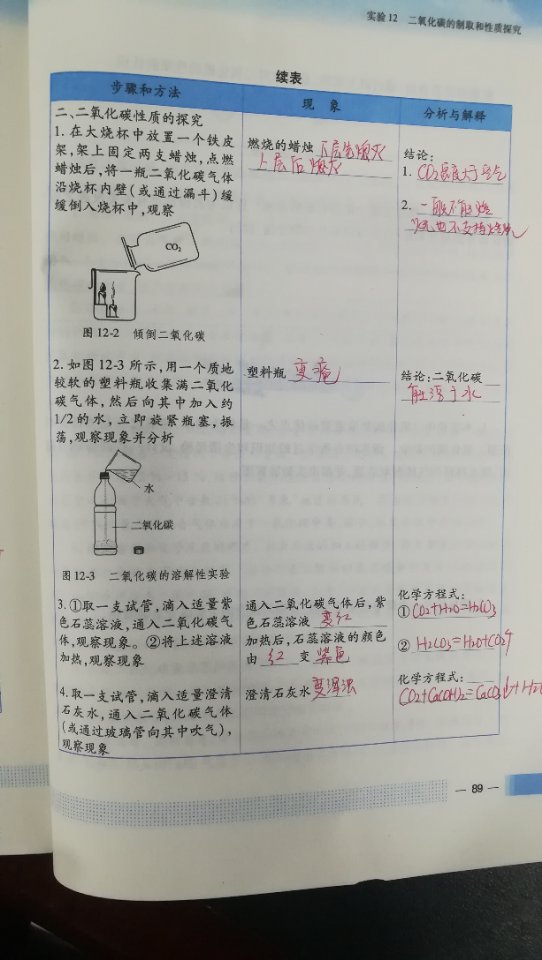 实验12 二氧化碳的制取和性质探究
续表
步骤和方法
现 象
分析与解释
二、二氧化碳性质的探究
1. 在大烧杯中放置一个铁皮
架,架上固定两支蜡烛,点燃
蜡烛后,将一瓶二氧化碳气体
沿烧杯内壁(或通过漏斗)缓
缓倒入烧杯中,观察
燃烧的蜡烛 下层先熄灭
上层后熄灭
结论:
1. CO2密度大于空气
2. 一般不能燃
烧也不支持燃烧
CO2
图 12-2 倾倒二氧化碳
2. 如图 12-3 所示,用一个质地
较软的塑料瓶收集满二氧化
碳气体,然后向其中加入约
1/2 的水,立即旋紧瓶塞,振
荡,观察现象并分析
塑料瓶 变瘪
结论:二氧化碳
能溶于水
水
二氧化碳
图 12-3 二氧化碳的溶解性实验
3. ①取一支试管,滴入适量紫
色石蕊溶液,通入二氧化碳气
体,观察现象。②将上述溶液
加热,观察现象
通入二氧化碳气体后,紫
色石蕊溶液 变红
加热后,石蕊溶液的颜色
由 红 变 紫色
化学方程式:
①CO2+H2O=H2CO3
② H2CO3=H2O+CO2↑
4. 取一支试管,滴入适量澄清
石灰水,通入二氧化碳气体
(或通过玻璃管向其中吹气),
观察现象
澄清石灰水 变浑浊
化学方程式:
CO2+Ca(OH)2=CaCO3↓+H2O
— 89 —